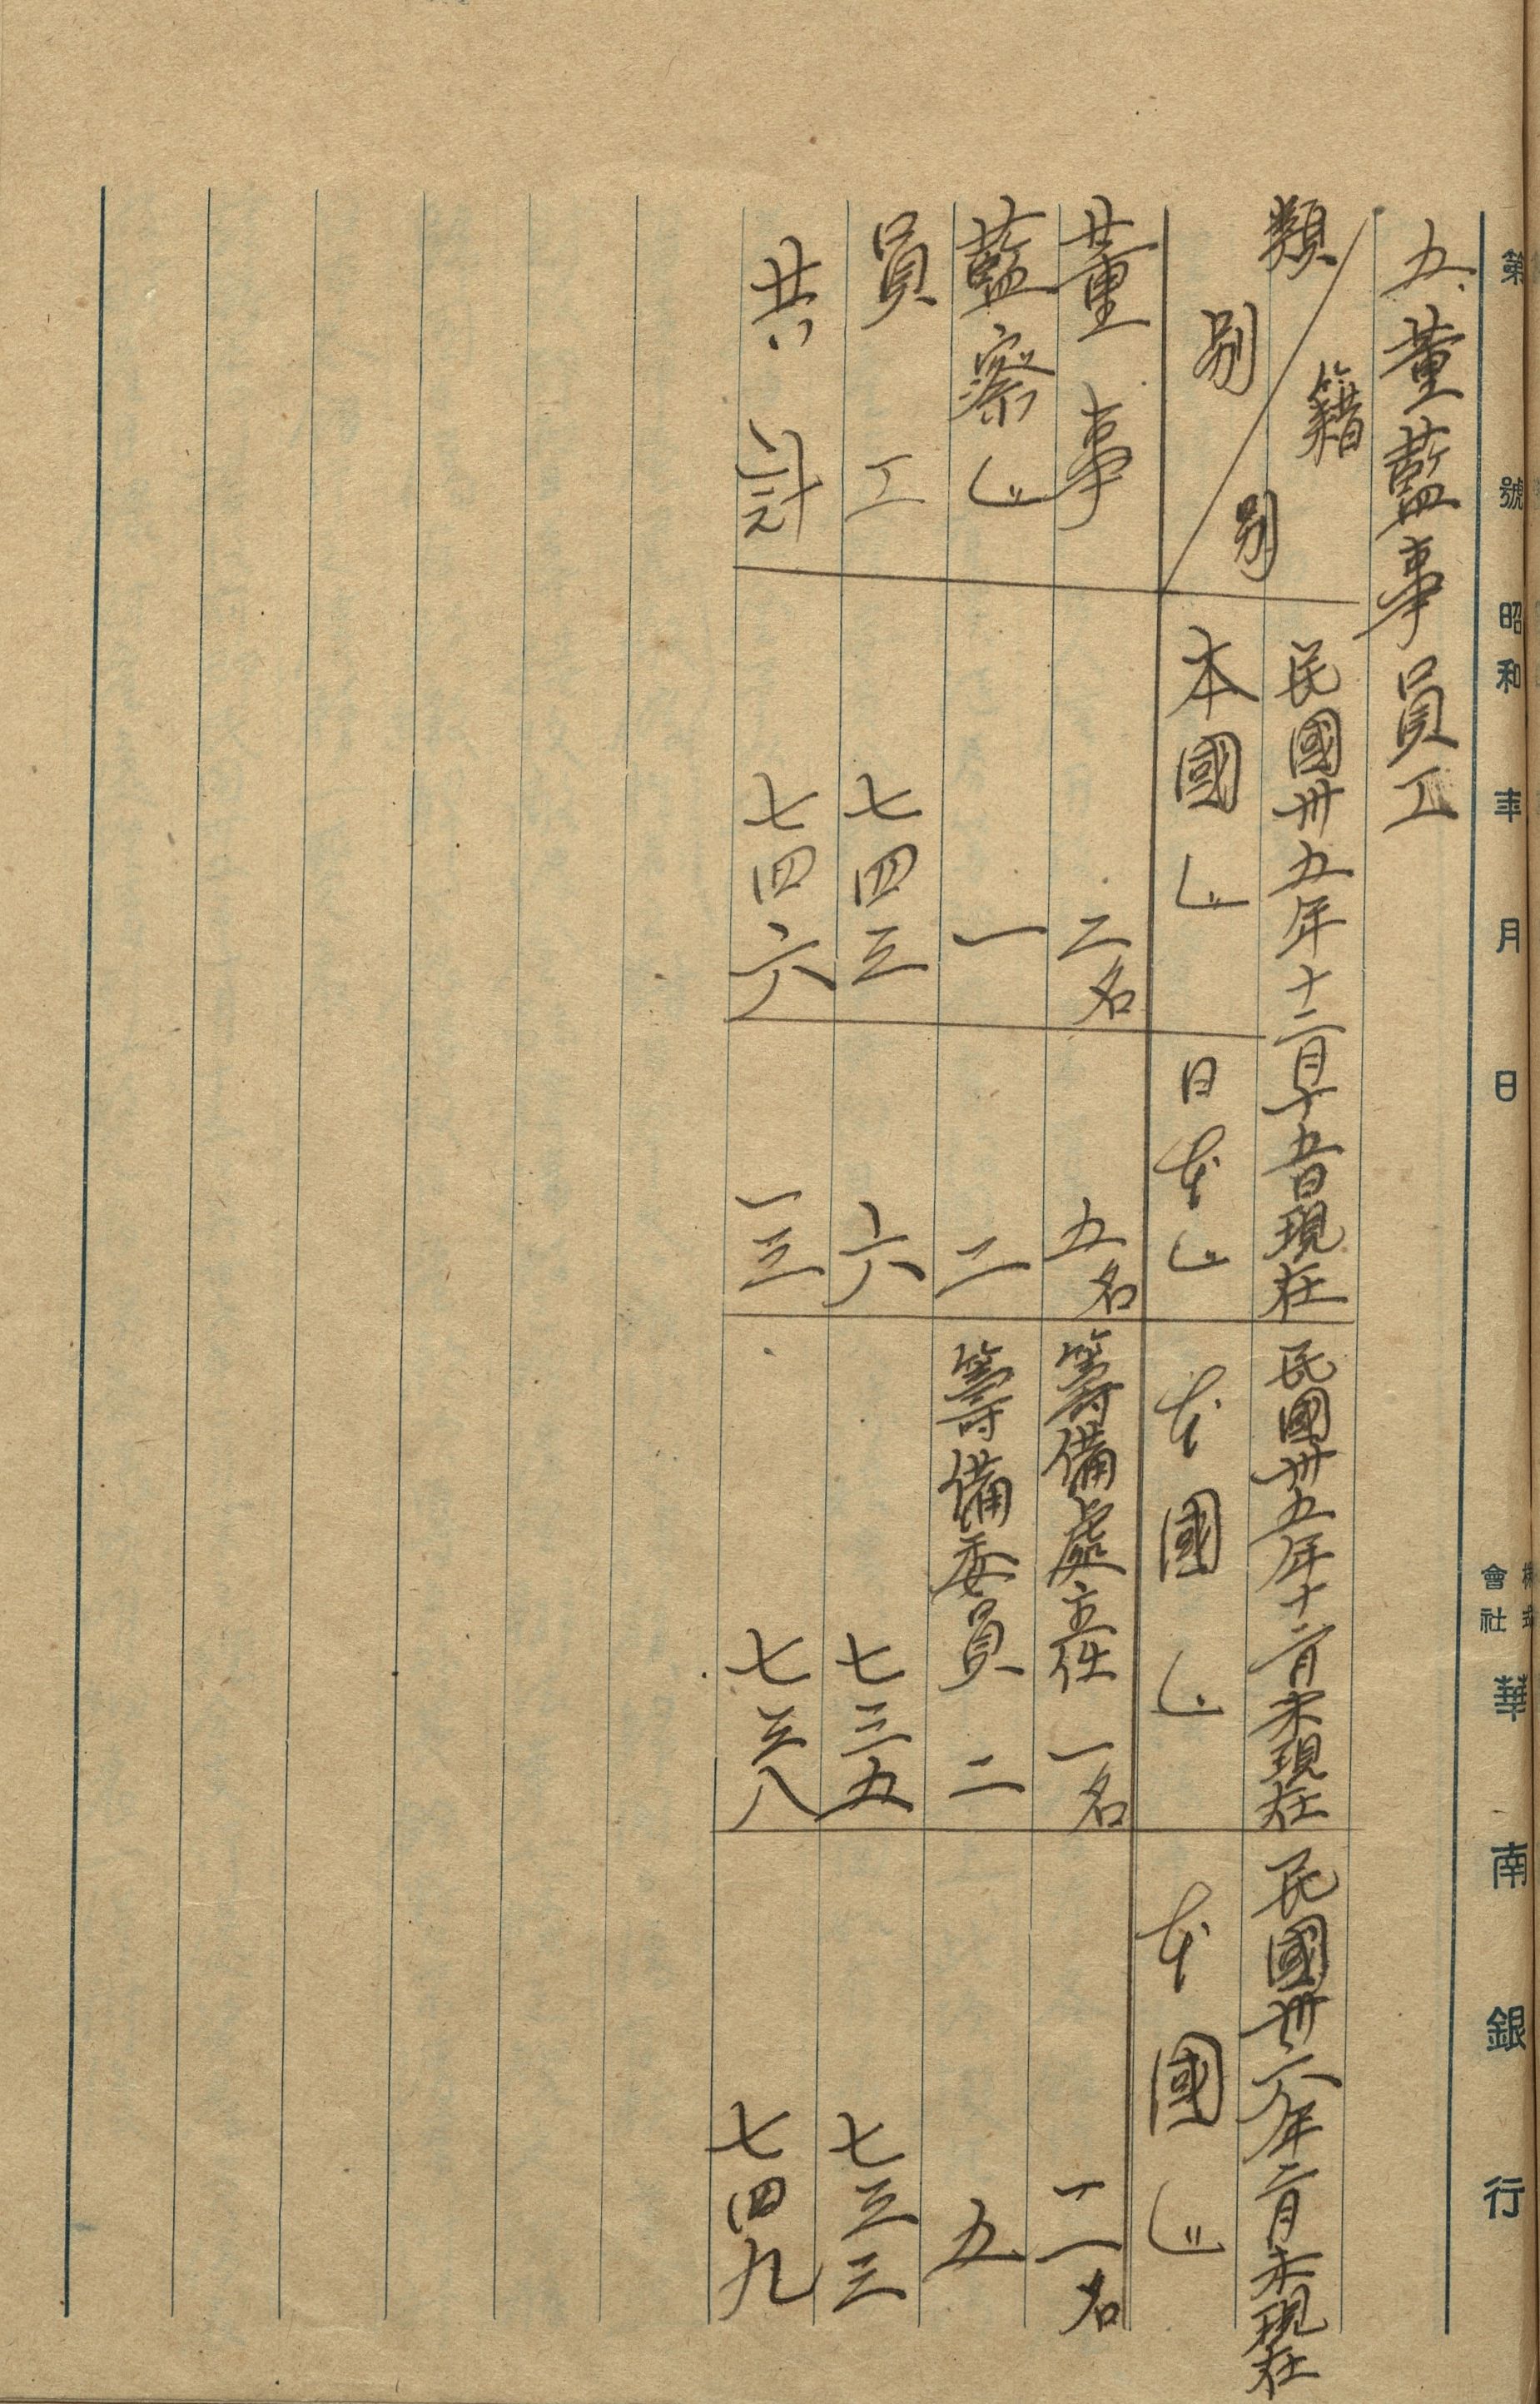 第 號 昭和 年 月 日 會社 華南銀行
五、董藍事員工
籍別 民國卅五年十二月十五日現在 民國卅五年十二月末現在 民國卅六年二月末現在
類別 本國人 日本人 本國人 本國人
董事 二名 五名 籌備處主任 一名 一一名
藍察人 一 二 籌備委員 二 五
員工 七四三 六 七三五 七三三
共計 七四六 一三 七三八 七四九